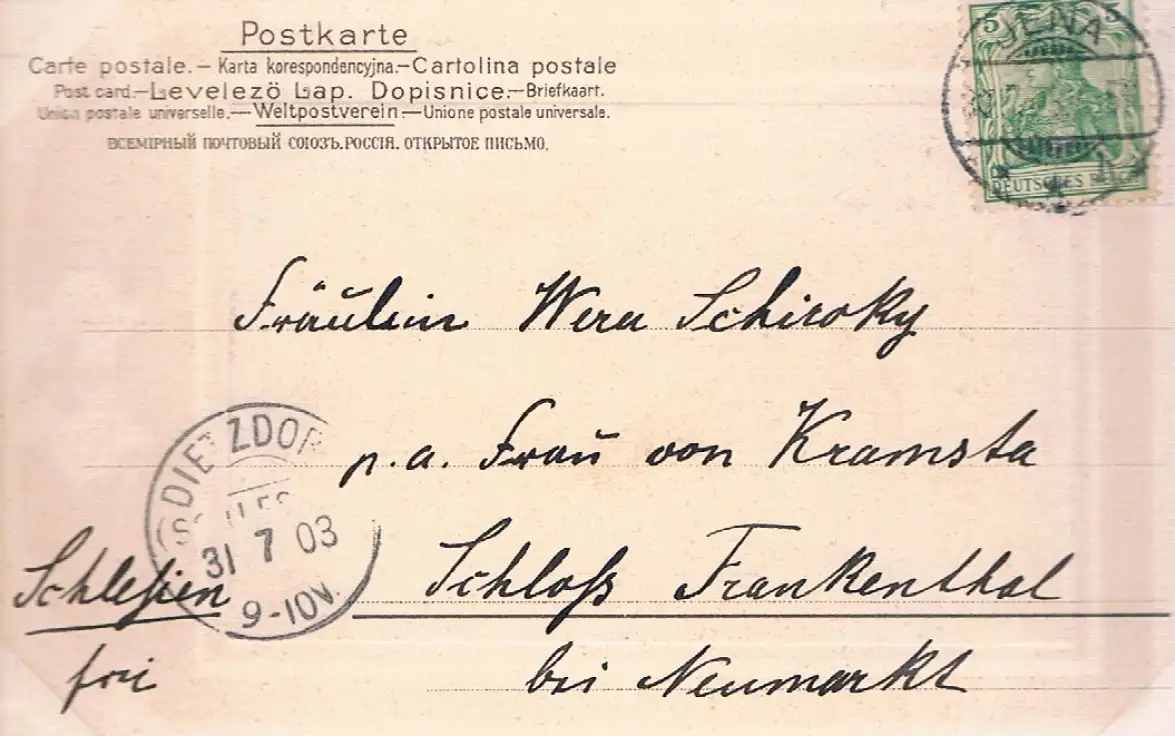 Postkarte
Carte postale.– Karta korespondencyjna.–Cartolina postale
Post card.–Levelezö Lap. Dopisnice.–Briefkaart.
Unica postale universelle.—Weltpostverein.—Unione postale universale.
ВСЕМІРНЫЙ ПОЧТОВЫЙ СОЮЗЪ.РОССІЯ. ОТКРЫТОЕ ПИСЬМО.
5 5
JENA
DEUTSCHES REICH
Fräulein Wera Schiroky
p.a. Frau von Kramsta
DIETZDORF
31 7 03
9-10V.
Schloß Frankenthal
Schlesien
bei Neumarkt
frei